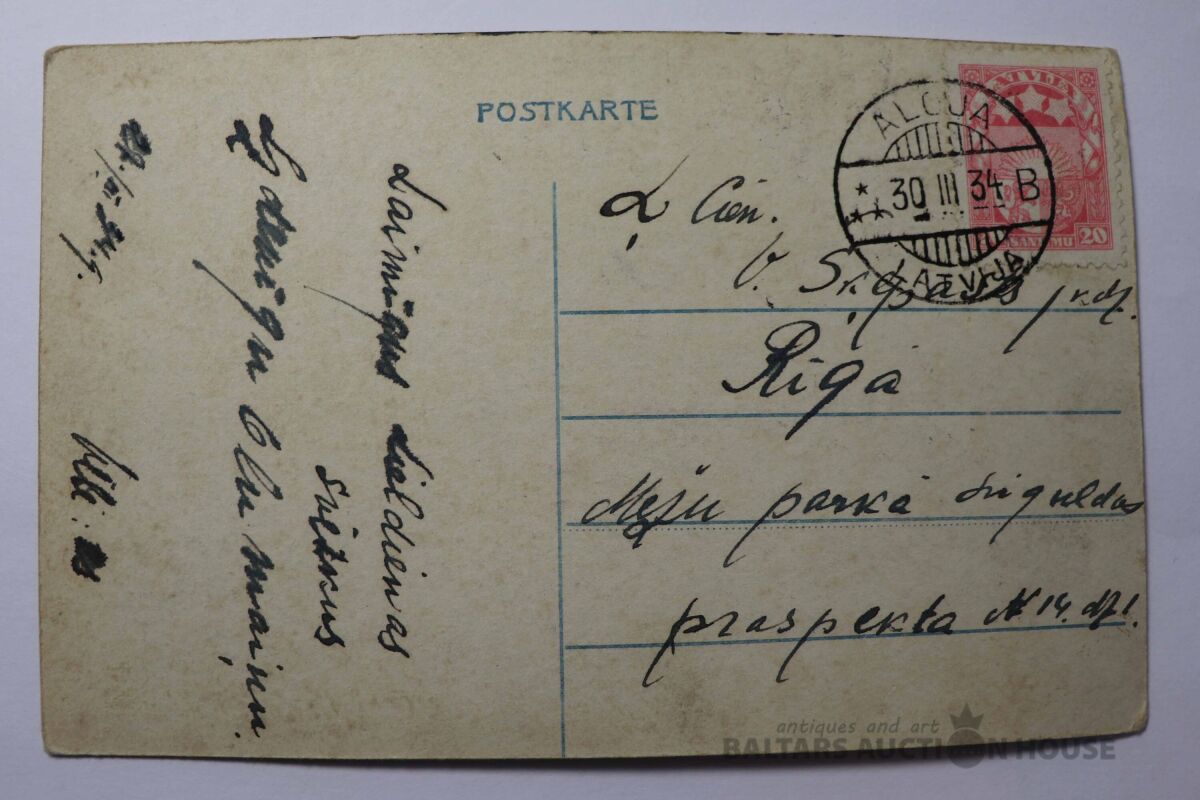 POSTKARTE
LATVIJA
20
SANTIMU
ALOJA
30 III 34 B
LATVIJA
Ļ Cien.
V.
Rīgā
Mežu parkā Siguldas
prospektā № 14. dz 1.
Laimīgus Lieldienas
svētkus
Olu maiņu.
antiques and art
BALTARS AUCTION HOUSE